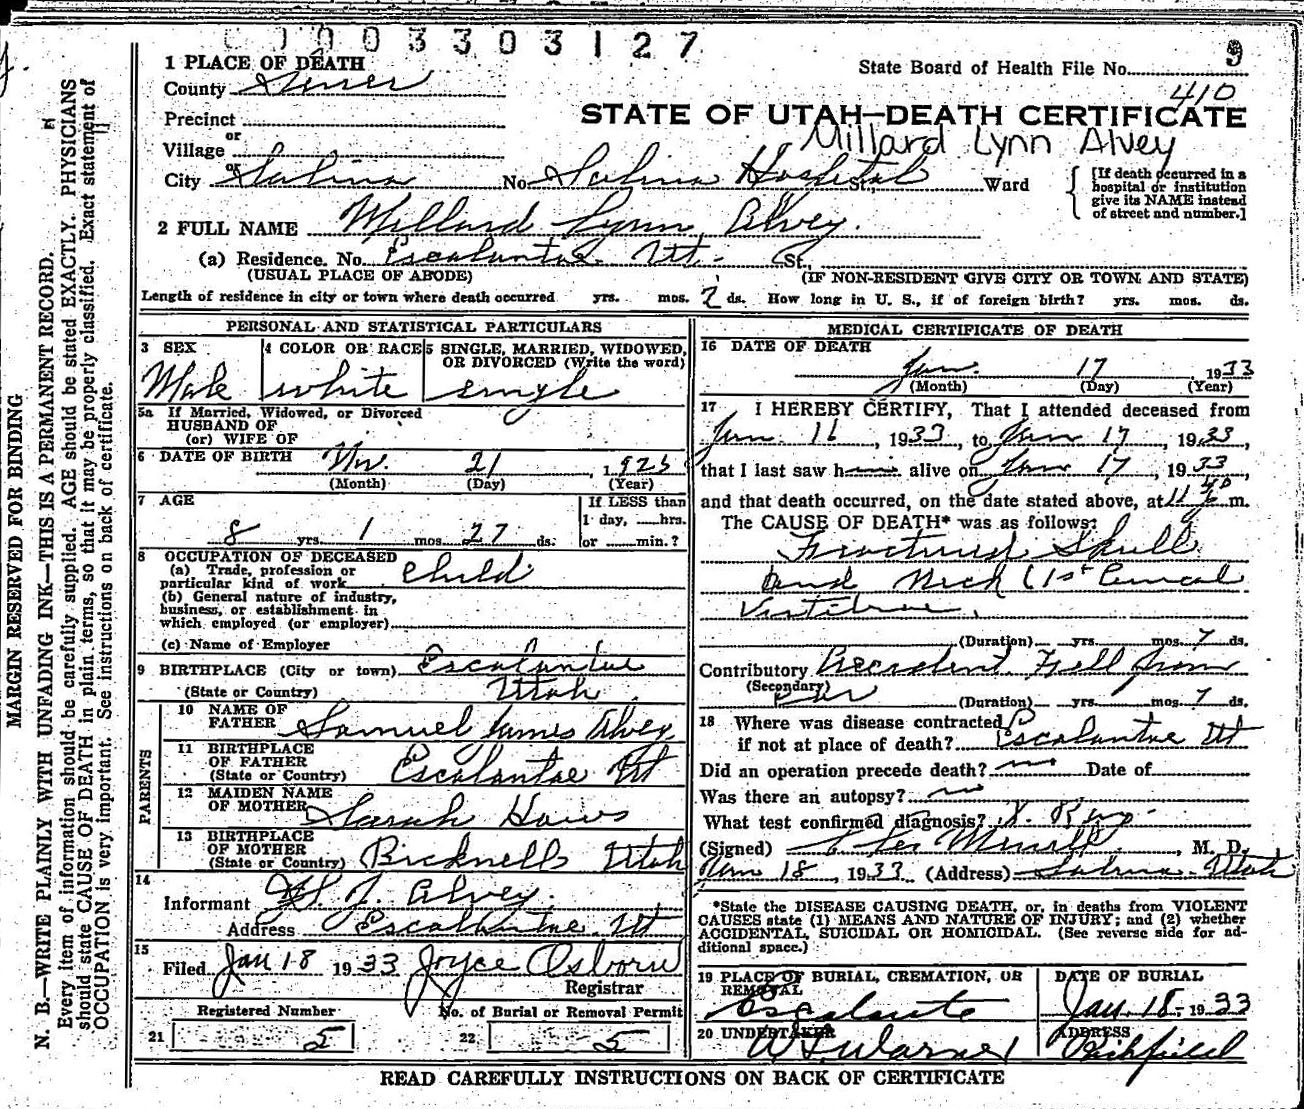 0 1 0 0 3 3 0 3 1 2 7
9
1 PLACE OF DEATH
State Board of Health File No.
410
County Sevier
STATE OF UTAH—DEATH CERTIFICATE
Precinct
Millard Lynn Alvey
or
Village
or
City Salina No. Salina Hospital St., Ward
[If death occurred in a
hospital or institution
give its NAME instead
of street and number.]
2 FULL NAME Millard Lynn Alvey.
(a) Residence. No. Escalante Ut. St.,
(USUAL PLACE OF ABODE) (IF NON-RESIDENT GIVE CITY OR TOWN AND STATE)
Length of residence in city or town where death occurred yrs. mos. 2 ds. How long in U. S., if of foreign birth? yrs. mos. ds.
PERSONAL AND STATISTICAL PARTICULARS
3 SEX 4 COLOR OR RACE 5 SINGLE, MARRIED, WIDOWED,
OR DIVORCED (Write the word)
Male white single
5a If Married, Widowed, or Divorced
HUSBAND OF
(or) WIFE OF
6 DATE OF BIRTH Nov. 21, 1923
(Month) (Day) (Year)
7 AGE If LESS than
1 day, hrs.
8 yrs. 1 mos. 27 ds. or min.?
8 OCCUPATION OF DECEASED
(a) Trade, profession or
particular kind of work child
(b) General nature of industry,
business, or establishment in
which employed (or employer)
(c) Name of Employer
9 BIRTHPLACE (City or town) Escalante
(State or Country) Utah
PARENTS
10 NAME OF
FATHER Samuel James Alvey
11 BIRTHPLACE
OF FATHER
(State or Country) Escalante Ut
12 MAIDEN NAME
OF MOTHER Sarah Haws
13 BIRTHPLACE
OF MOTHER
(State or Country) Bicknell Utah
14
Informant J. Alvey.
Address Escalante. Ut
15
Filed Jan 18 1933 Joyce Osborn
Registrar
Registered Number No. of Burial or Removal Permit
21 5 22 5
MEDICAL CERTIFICATE OF DEATH
16 DATE OF DEATH
Jan. 17 1933
(Month) (Day) (Year)
17 I HEREBY CERTIFY, That I attended deceased from
Jan. 16, 1933, to Jan 17, 1933,
that I last saw him alive on Jan 17, 1933
and that death occurred, on the date stated above, at 11 m.
The CAUSE OF DEATH* was as follows:
Fractured Skull
and Neck (1st Cervical
Vertebrae.
(Duration) yrs. mos. 7 ds.
Contributory Accident. Fell from
(Secondary)
(Duration) yrs. mos. 7 ds.
18 Where was disease contracted
if not at place of death? Escalante Ut
Did an operation precede death? no Date of
Was there an autopsy? no
What test confirmed diagnosis? X. Ray
(Signed) M. D.
Jan 18, 1933 (Address) Salina. Utah
*State the DISEASE CAUSING DEATH, or, in deaths from VIOLENT
CAUSES state (1) MEANS AND NATURE OF INJURY; and (2) whether
ACCIDENTAL, SUICIDAL OR HOMICIDAL. (See reverse side for ad-
ditional space.)
19 PLACE OF BURIAL, CREMATION, OR DATE OF BURIAL
REMOVAL
Escalante Jan. 18. 1933
20 UNDERTAKER ADDRESS
Warner Richfield
READ CAREFULLY INSTRUCTIONS ON BACK OF CERTIFICATE
MARGIN RESERVED FOR BINDING
N. B.—WRITE PLAINLY WITH UNFADING INK—THIS IS A PERMANENT RECORD.
Every item of information should be carefully supplied. AGE should be stated EXACTLY. PHYSICIANS
should state CAUSE OF DEATH in plain terms, so that it may be properly classified. Exact statement of
OCCUPATION is very important. See instructions on back of certificate.